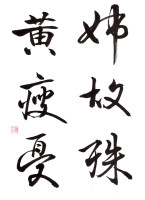 姊故珠
黄瘦憂